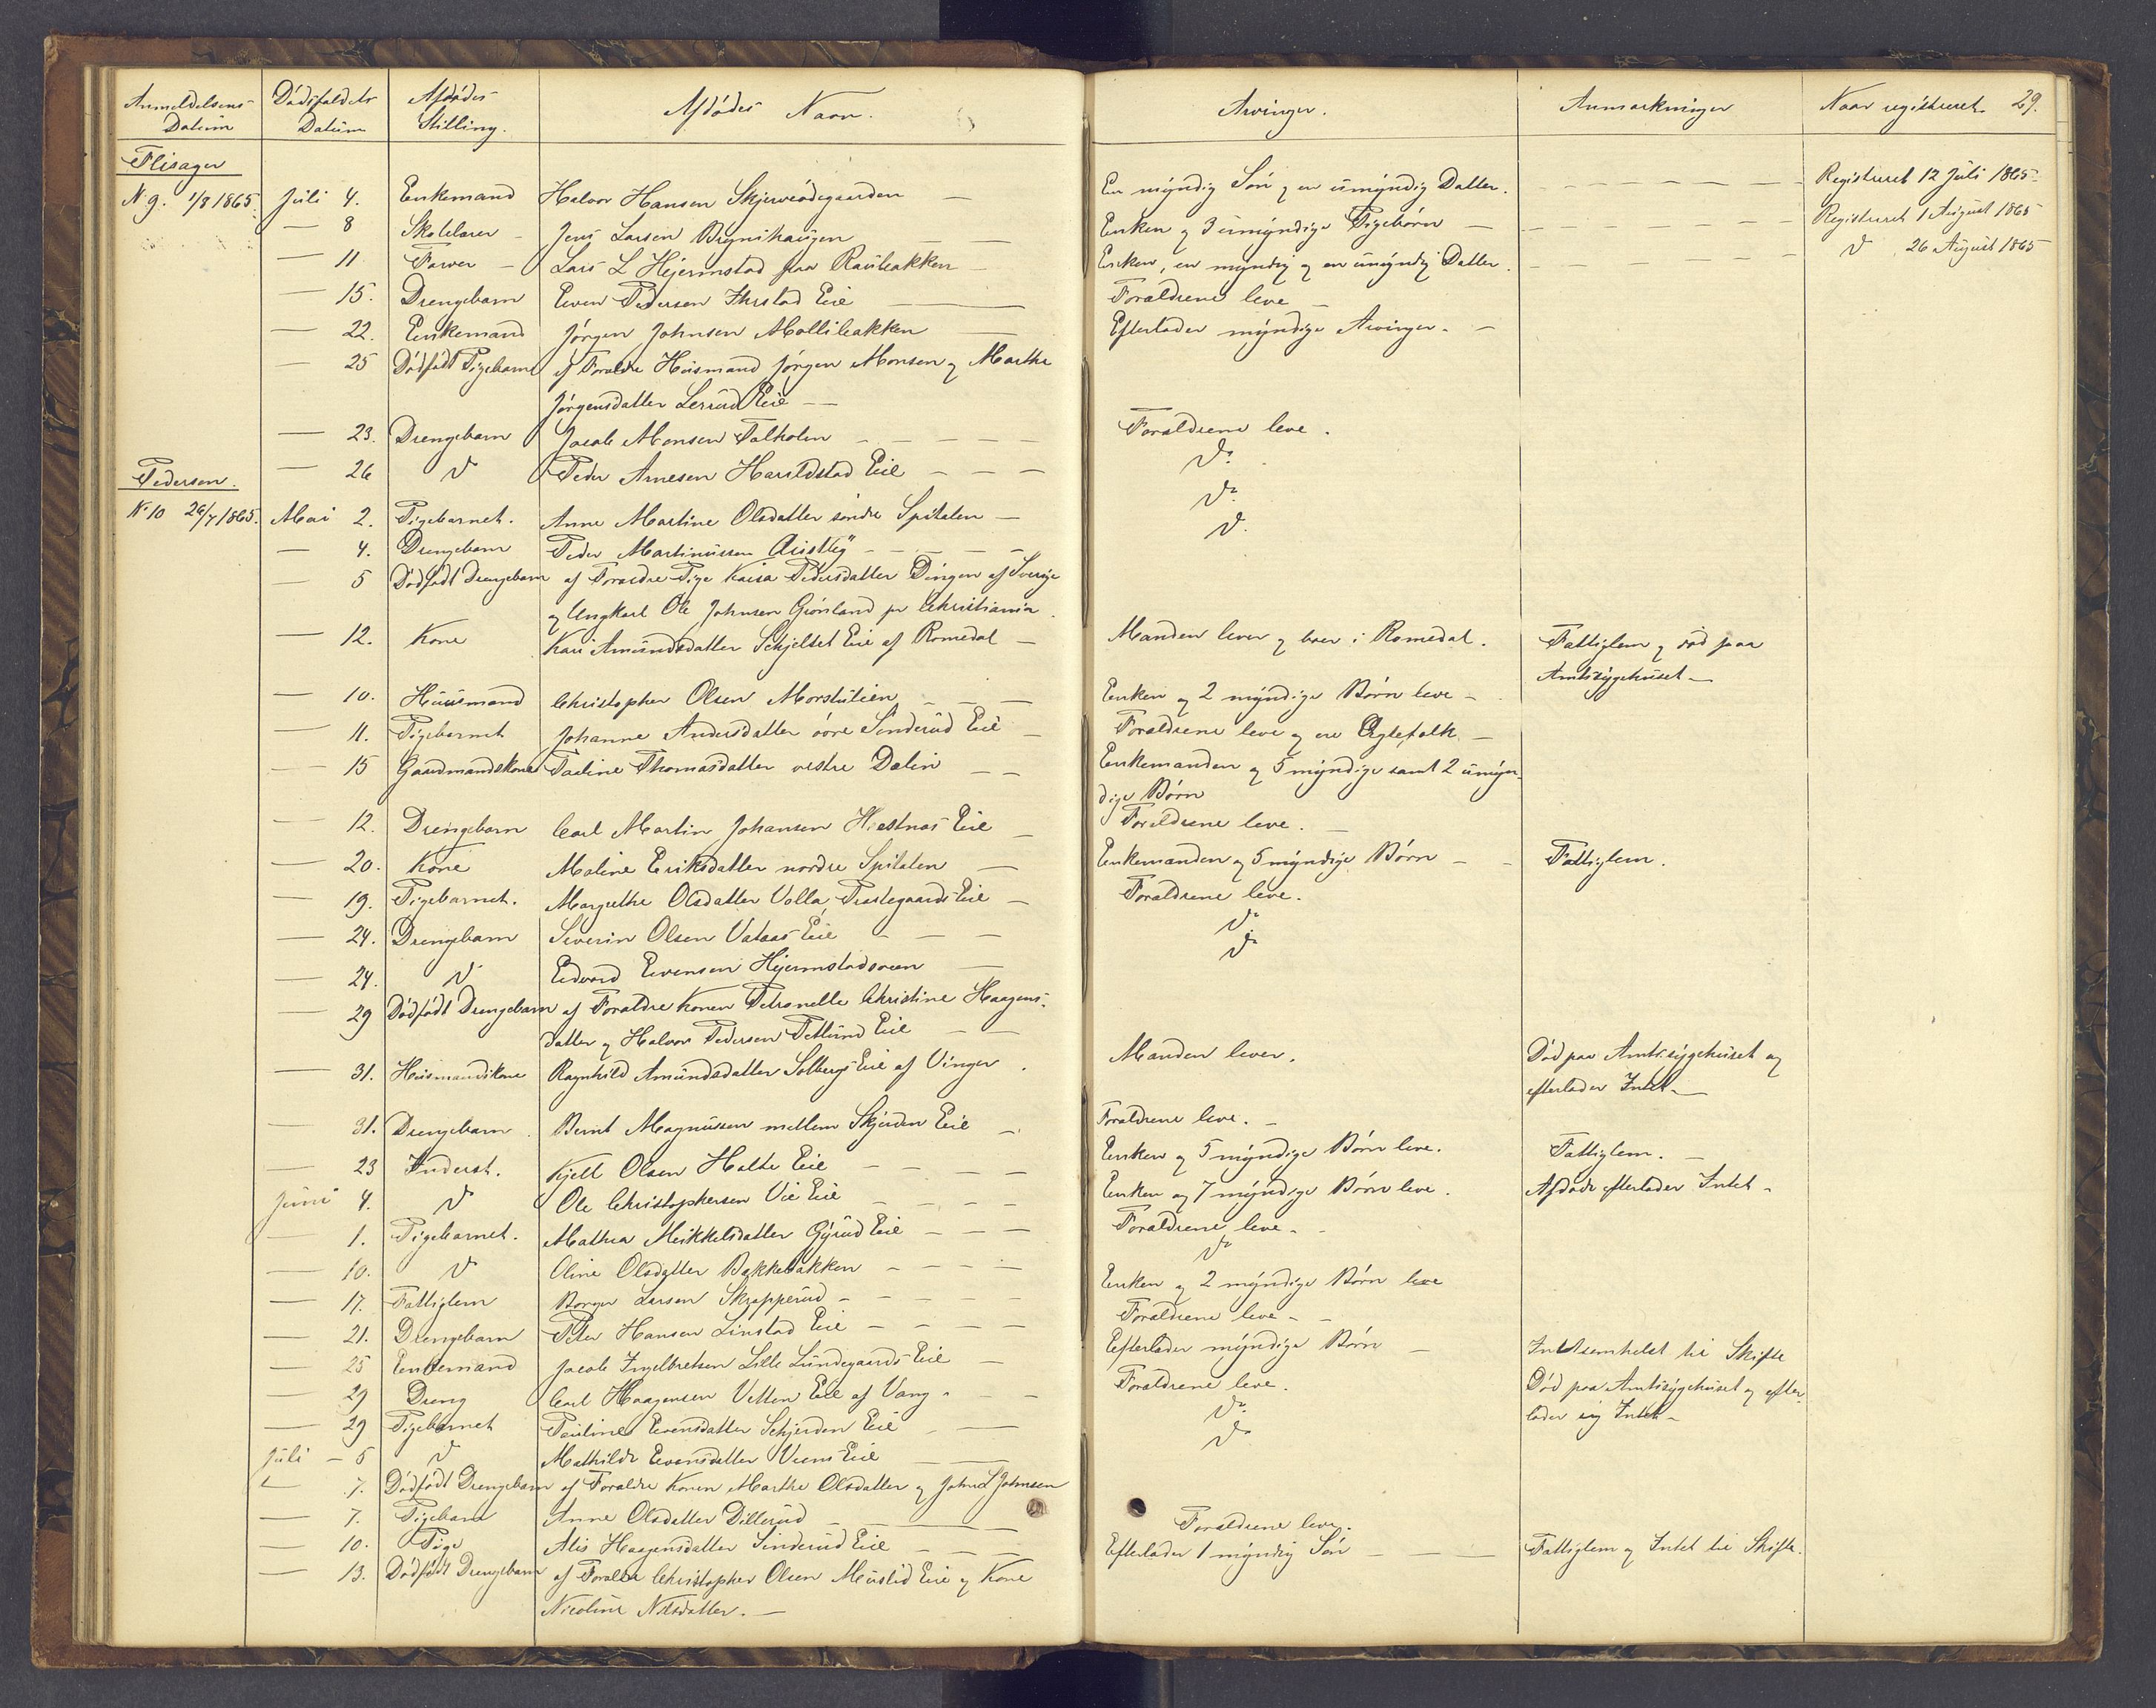 Anmeldelsens Datum | Dødsfaldets Datum | Afdødes Stilling. | Afdødes Navn. | Arvinger. | Anmærkninger | Naar registreret. 29.
Flisager
N. 9. 1/8 1865. Juli 4. Enkemand Halvor Hansen Skjerveødegaarden — En myndig Søn og en umyndig Datter. — Registreret 12 Juli 1865.
— 8 Skolelærer Jens Larsen Bignishaugen — Enken og 3 umyndige Pigebørn — Registreret 1 August 1865
— 11 Farver Lars L Hjermstad paa Raubakken — Enken, en myndig og en umyndig Datter. — do 26 August 1865
— 15. Drengebarn Even Pedersen Ihrstad Eie — Forældrene leve —
— 22. Enkemand Jørgen Johnsen Mollibakken — Efterlader myndige Arvinger. —
— 25 Dødfødt Pigebarn af Forældre Huusmand Jørgen Monsen og Marthe
Jørgensdatter Lerud Eie —
— 23. Drengebarn Jacob Monsen Falholen — Forældrene leve.
— 26 do Peder Arnesen Harildstad Eie — do
Pedersen.
N. 10 26/7 1865. Mai 2. Pigebarnet. Anne Martine Olsdatter søndre Spitalen — do
— 4. Drengebarn Peder Martinussen Austlig — do
— 5 Dødfødt Drengebarn af Forældre Pige Kaisa Pedersdatter Dingen af Sverige
og Ungkarl Ole Johnsen Grønland pr Christiania.
— 12. Kone Kari Amundsdatter Schjelset Eie af Romedal — Manden lever og boer i Romedal. Fattiglem og død paa
Amtssygehuset —
— 10. Huusmand Christopher Olsen Morstulien — Enken og 2 myndige Børn leve —
— 11. Pigebarnet Johanne Andersdatter øvre Sinderud Eie — Forældrene leve og ere Ægtefolk —
— 15 Gaardmandskone Pauline Thomasdatter vestre Dalin — Enkemanden og 5 myndige samt 2 umyn-
dige Børn
— 12. Drengebarn Carl Martin Johansen Hæstnæs Eie — Forældrene leve. —
— 20. Kone Maline Eriksdatter nordre Spitalen — Enkemanden og 5 myndige Børn — Fattiglem.
— 19. Pigebarnet. Margrethe Olsdatter Volla, Præstegaards Eie — Forældrene leve.
— 24. Drengebarn Severin Olsen Vataas Eie — do
— 24. do Edvard Evensen Hjermstadsveen — do
— 29 Dødfødt Drengebarn af Forældre Konen Petronelle Christine Haagens-
datter og Halvor Pedersen Petlund Eie —
— 31. Huusmandskone Ragnhild Amundsdatter Solbergs Eie af Vinger. Manden lever. Død paa Amtssygehuset og
efterlader Intet —
— 31. Drengebarn Bernt Magnussen mellem Skjerden Eie — Forældrene leve. —
— 23 Inderst. Kjell Olsen Holte Eie — Enken og 5 myndige Børn leve. Fattiglem. —
Juni 4. do Ole Christophersen Vie Eie — Enken og 7 myndige Børn leve. Afdøde efterlader Intet —
— 1. Pigebarnet. Mathea Mikkelsdatter Gyrud Eie — Forældrene leve —
— 10. do Oline Olsdatter Bekkebakken — do
— 17. Fattiglem Borger Larsen Skrapperud — Enken og 2 myndige Børn leve
— 21. Drengebarn Peter Hansen Linstad Eie — Forældrene leve —
— 25 Enkemand Jacob Ingebretsen Lille Lundgaards Eie — Efterlader myndige Børn — Intetsomhelst til Skifte
— 29 Dreng Carl Haagensen Vetten Eie af Vang — Forældrene leve. Død paa Amtssygehuset og efter-
lader sig Intet —
— 29 Pigebarnet Pauline Evensdatter Schjerden Eie — do
Juli — 5 do Mathilde Evensdatter Veens Eie — do
— 7. Dødfødt Drengebarn af Forældre Konen Marthe Olsdatter og John L Johnsen
— 7. Pigebarn Anne Olsdatter Dillerud — Forældrene leve.
— 10. Pige Alis Haagensdatter Sinderud Eie — Efterlader 1 myndig Søn — Fattiglem og Intet til Skifte.
— 13. Dødfødt Drengebarn af Forældre Christopher Olsen Mustid Eie og Kone
Nicoline Nilsdatter. —